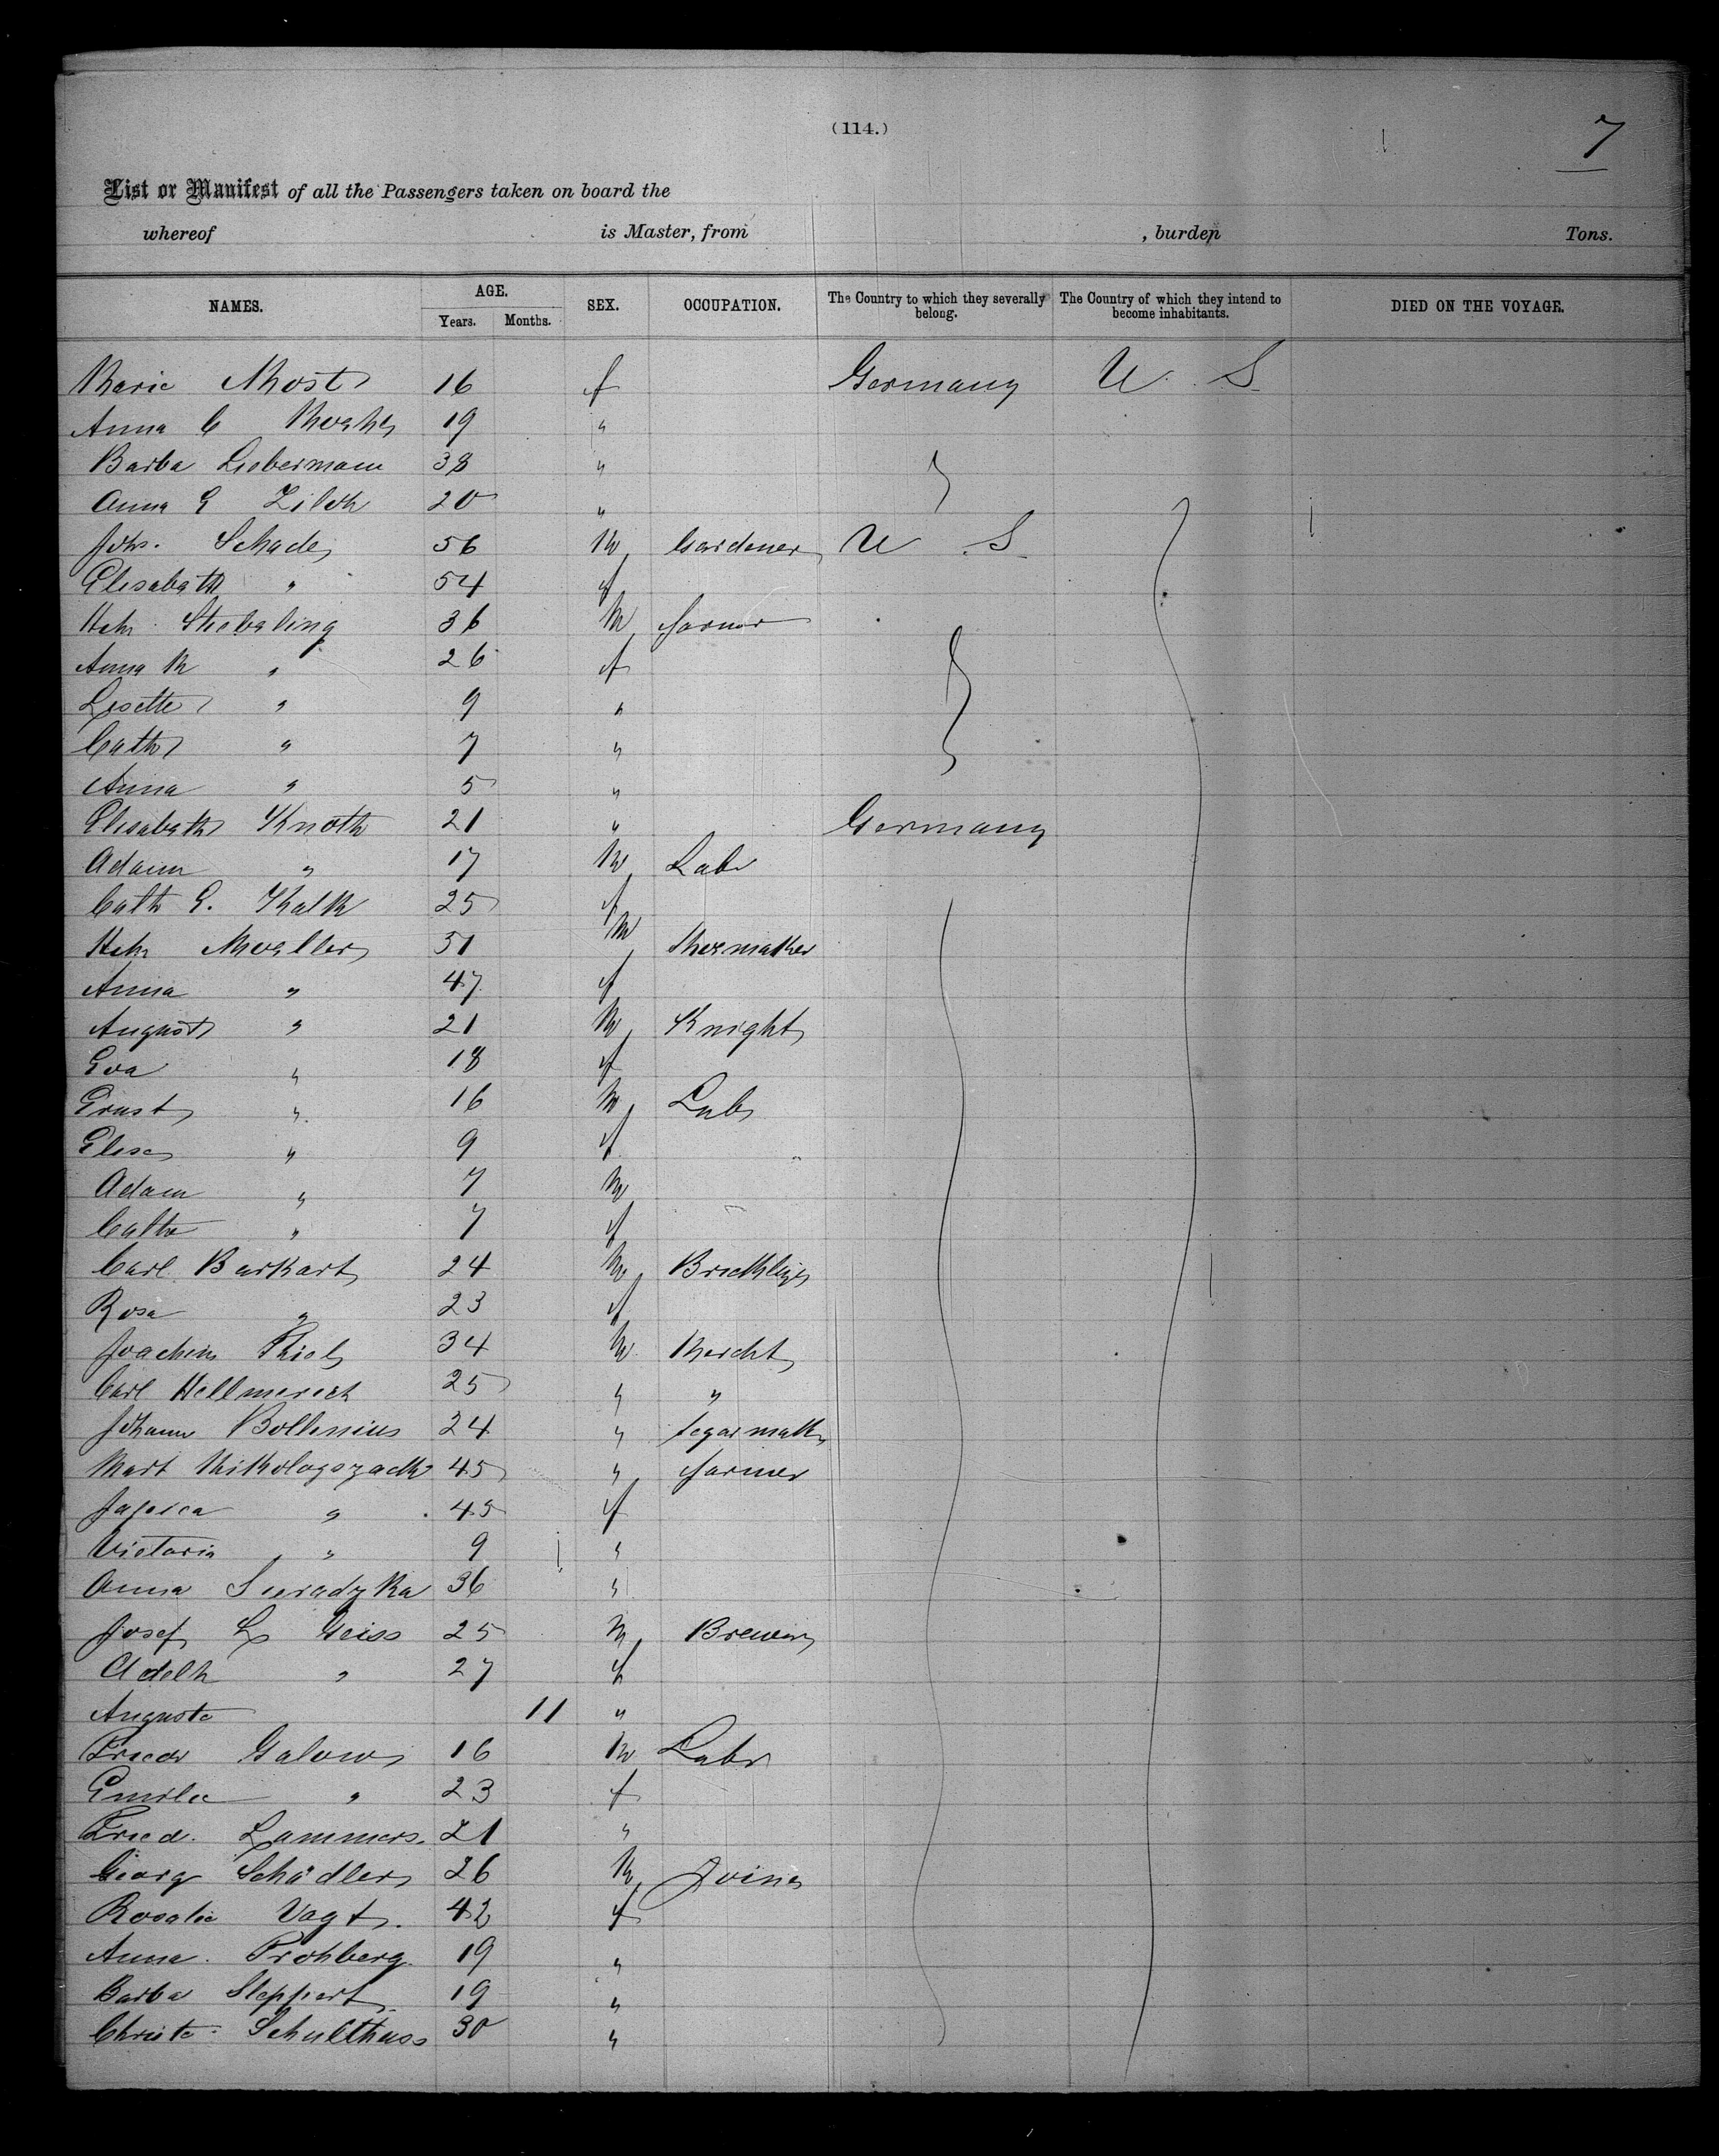 (114.)
7
List or Manifest of all the Passengers taken on board the
whereof is Master, from , burden Tons.
NAMES. AGE. SEX. OCCUPATION. The Country to which they severally belong. The Country of which they intend to become inhabitants. DIED ON THE VOYAGE.
Years. Months.
Marie Most 16 f Germany U. S.
Anna C 19 "
Barba Liebermann 38 "
Anna E 20 "
Johs. Schade 56 M Gardener U S.
Elisabeth " 54 f
Hch Stiebeling 36 M farmer
Anna M " 26 f
Lisette " 9 "
Cath " 7 "
Anna " 5 "
Elisabeth Knoth 21 " Germany
Adam " 17 M Labr
Cath E. Kalk 25 f
Hch Mueller 51 M Shoemaker
Anna " 47 f
August " 21 M Knight
Eva " 18 f
Ernst " 16 M Labr
Elise " 9 f
Adam " 7 M
Cath " 7 f
Carl Burkart 24 M
Rosa " 23 f
Joachim Thiel 34 M Mercht
Carl Hellmerich 25 " "
Johann Bollenius 24 " Segarmak
Mart 45 " farmer
" 45 f
Victoria " 9 "
Anna Sieradzka 36 "
Josef L Geiss 25 M Brewer
Adelh " 27 f
Auguste 11 "
Friedr Galow 16 M Labr
Emilie " 23 f
Fried. Lammers. 21 "
Georg Schädler 26 M Joiner
Rosalie Vagt. 42 f
Anna Frohberg. 19 "
Barba Steppert 19 "
Christe Schulthess 30 "